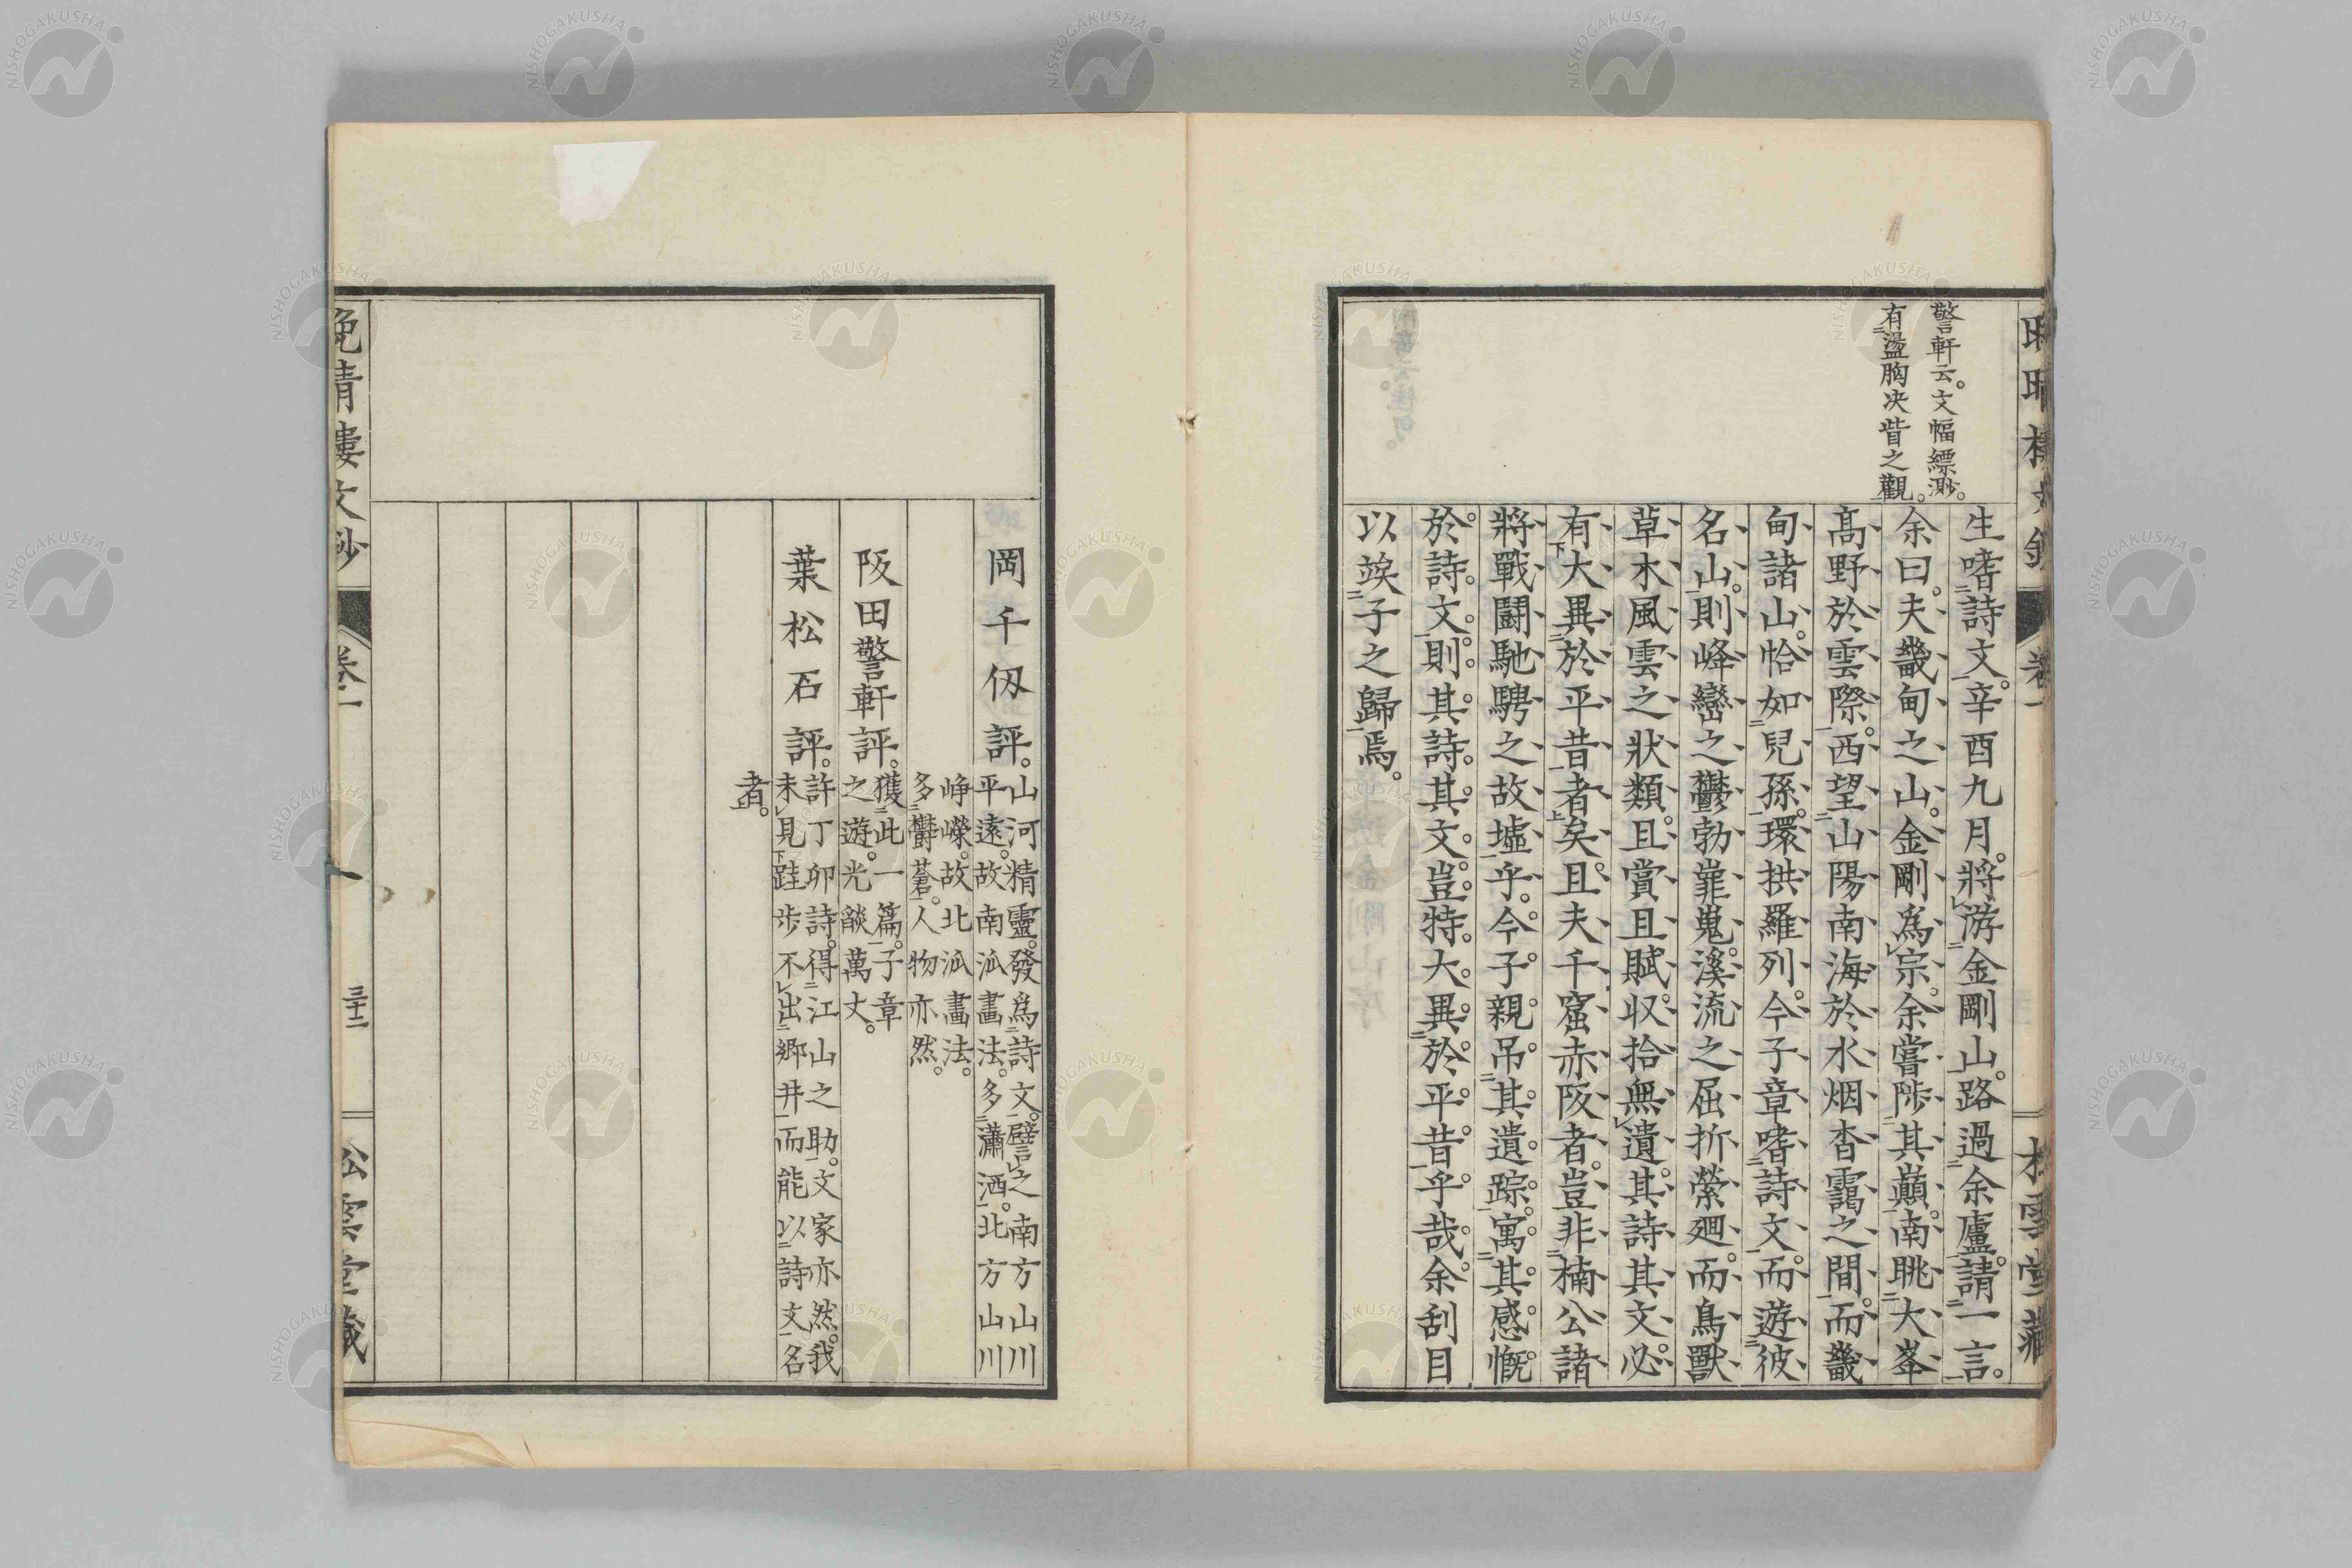 警軒云。文幅縹渺。
有盪胸决眥之觀。
生嗜詩文。辛酉九月。將游金剛山。路過余廬。請一言。
余曰。夫畿甸之山。金剛爲宗。余嘗陟其巔。南眺大峯
高野於雲際。西望山陽南海於水烟杳靄之間。而畿
甸諸山。恰如兒孫。環拱羅列。今子章嗜詩文。而遊彼
名山。則峰巒之鬱勃嶵嵬。溪流之屈折縈廻。而鳥獸
草木風雲之狀類。且賞且賦。収拾無遺。其詩其文。必
有大異於平昔者矣。且夫千窟赤阪者。豈非楠公諸
將戰鬪馳騁之故墟乎。今子親吊其遺踪。寓其感慨
於詩文。則其詩其文。豈特大異於平昔乎哉。余刮目
以竢子之歸焉。
岡千仭評。山河精靈。發爲詩文。譬之南方山川
平遠。故南派畫法。多瀟洒。北方山川
崢嶸。故北派畫法。
多鬱蒼。人物亦然。
阪田警軒評。獲此一篇。子章
之遊。光燄萬丈。
葉松石評。許丁卯詩。得江山之助。文家亦然。我
未見跬步不出鄉井。而能以詩文名
者。
晩晴樓文鈔
卷一
三十二
松雲堂藏